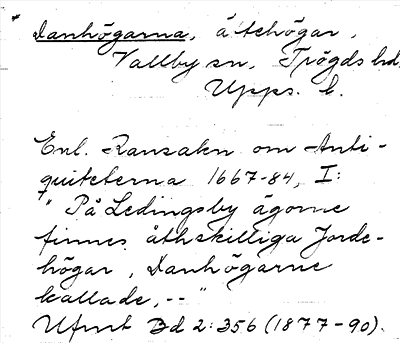 Danhögarna, ättehögar,
Vallby sn, Trögds hd,
Upps. l.
Enl. Ransakn om Anti-
quiteterna 1667-84, I:
"På Ledingsby ägorne
finnes åthskilliga Jorde-
högar, Danhögarne
kallade, -- "
Ufmt Bd 2:356 (1877-90).